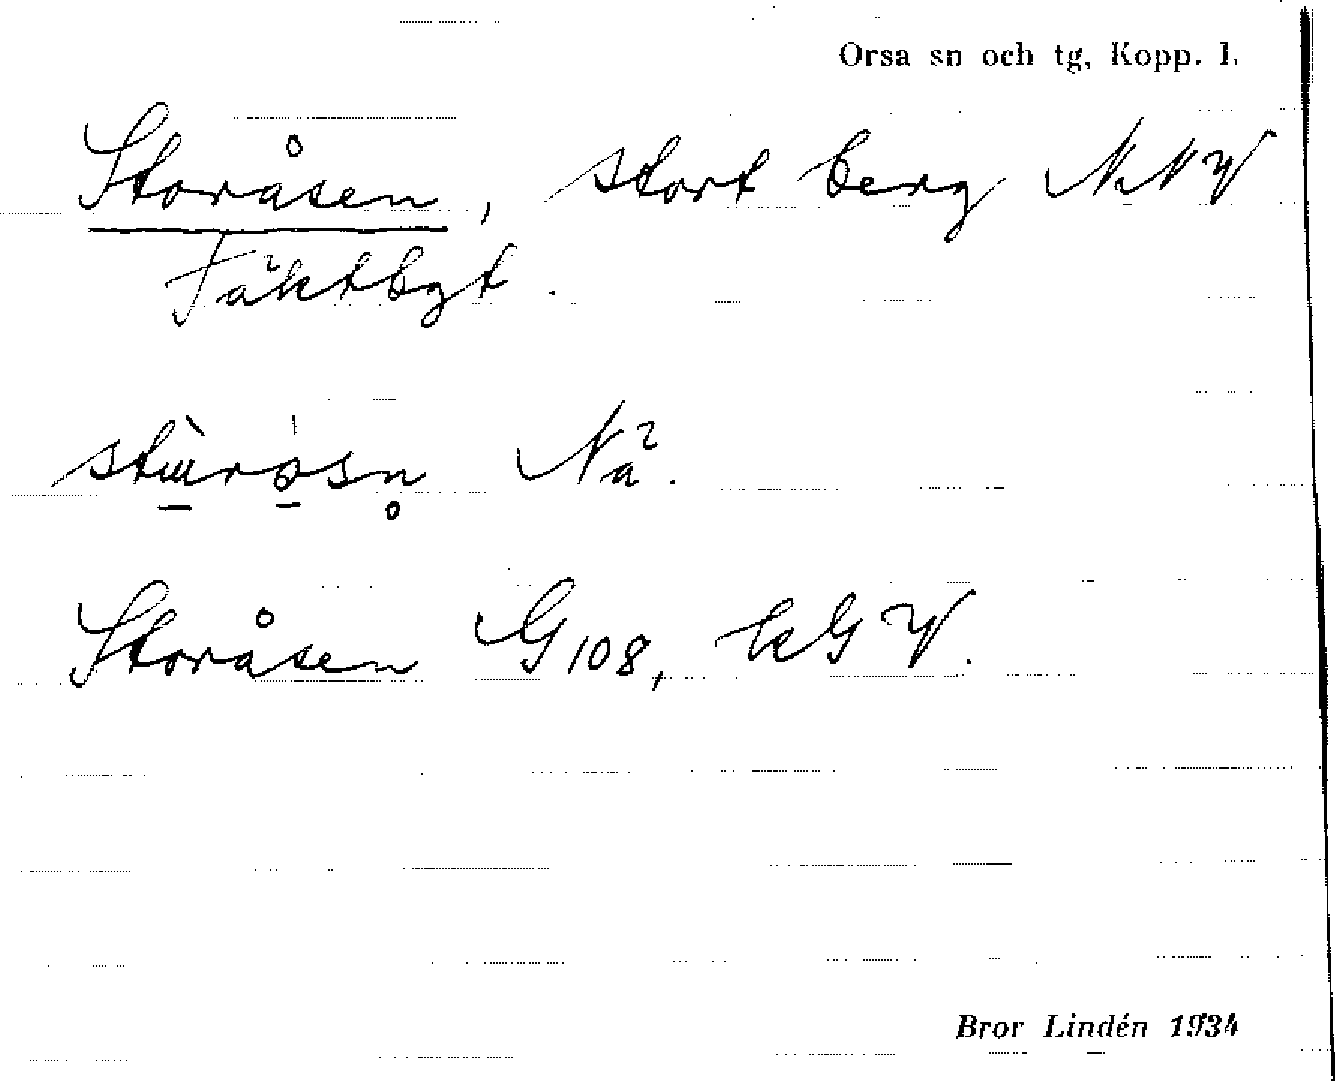 Orsa sn och tg, Kopp. l.
Storåsen, stort berg NNV
Fäktbgt.
Nä.
Storåsen G108, kGV.
Bror Lindén 1934